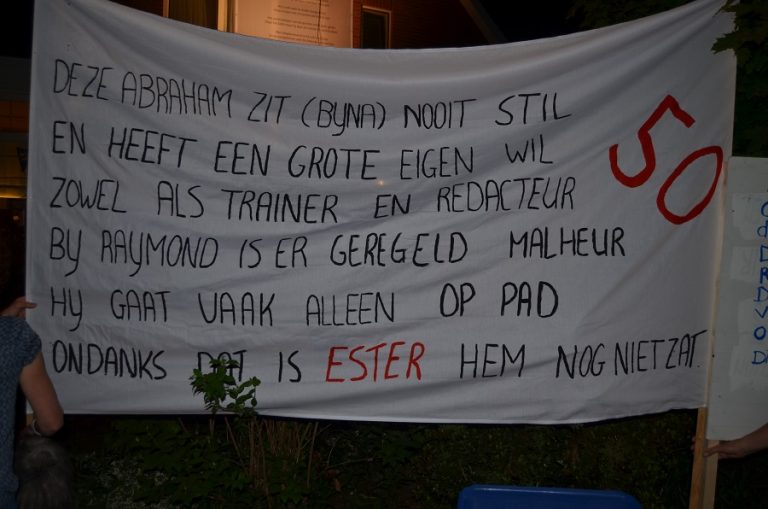 DEZE ABRAHAM ZIT (BYNA) NOOIT STIL
EN HEEFT EEN GROTE EIGEN WIL
ZOWEL ALS TRAINER EN REDACTEUR
BY RAYMOND IS ER GEREGELD MALHEUR
HY GAAT VAAK ALLEEN OP PAD
ONDANKS DAT IS ESTER HEM NOG NIET ZAT.
50